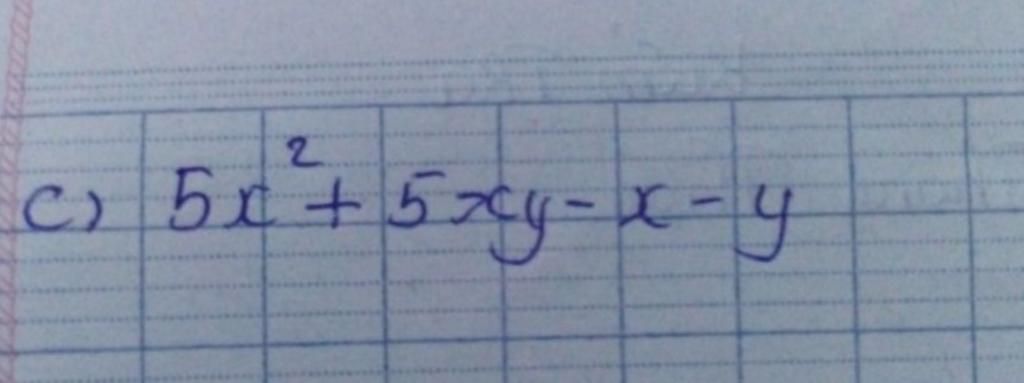 c) 5x² + 5xy - x - y